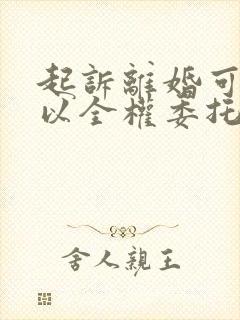 起訴離婚可
以全權委托
舍人親王